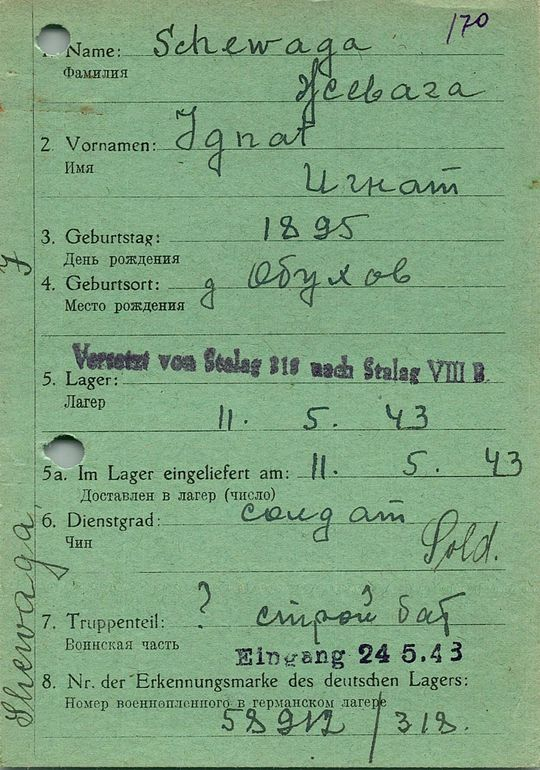 170
1. Name: Schewaga
Фамилия
Жевага
2. Vornamen: Ignat
Имя
Игнат
3. Geburtstag: 1895
День рождения
4. Geburtsort: д Обухов
Место рождения
Versetzt von Stalag 318 nach Stalag VIII B
5. Lager:
Лагер
11. 5. 43
5a. Im Lager eingeliefert am: 11. 5. 43
Доставлен в лагер (число)
6. Dienstgrad: солдат
Чин
Sold.
7. Truppenteil: ? строй бат
Воинская часть
Eingang 24 5.43
8. Nr. der Erkennungsmarke des deutschen Lagers:
Номер военнопленного в германском лагере
58912/318.
Shewaga, J